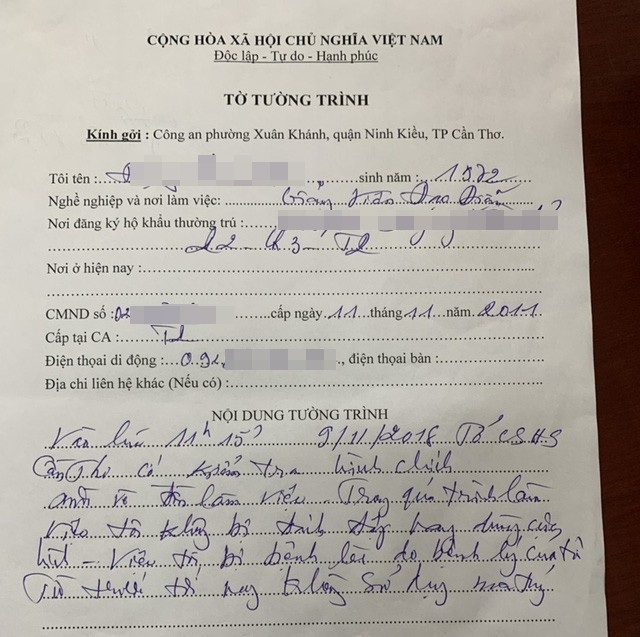 CỘNG HÒA XÃ HỘI CHỦ NGHĨA VIỆT NAM
Độc lập - Tự do - Hạnh phúc
TỜ TƯỜNG TRÌNH
Kính gởi : Công an phường Xuân Khánh, quận Ninh Kiều, TP Cần Thơ.
Tôi tên : sinh năm : 1972
Nghề nghiệp và nơi làm việc:
Nơi đăng ký hộ khẩu thường trú :
22 - Q3 -
Nơi ở hiện nay :
CMND số : cấp ngày 11 tháng 11 năm 2011
Cấp tại CA :
Điện thoại di động : 092 , điện thoại bàn :
Địa chỉ liên hệ khác (Nếu có) :
NỘI DUNG TƯỜNG TRÌNH
Vào lúc 11h 15' 9/11/2018 Tổ CSHS
Cần Thơ có kiểm tra hành chính
mời về đồn làm việc. Trong quá trình làm
việc tôi không bị đánh đập hay dùng cực
hình - Việc tôi bị bệnh là do bệnh lý của tôi
Từ trước tới nay không sử dụng ma túy